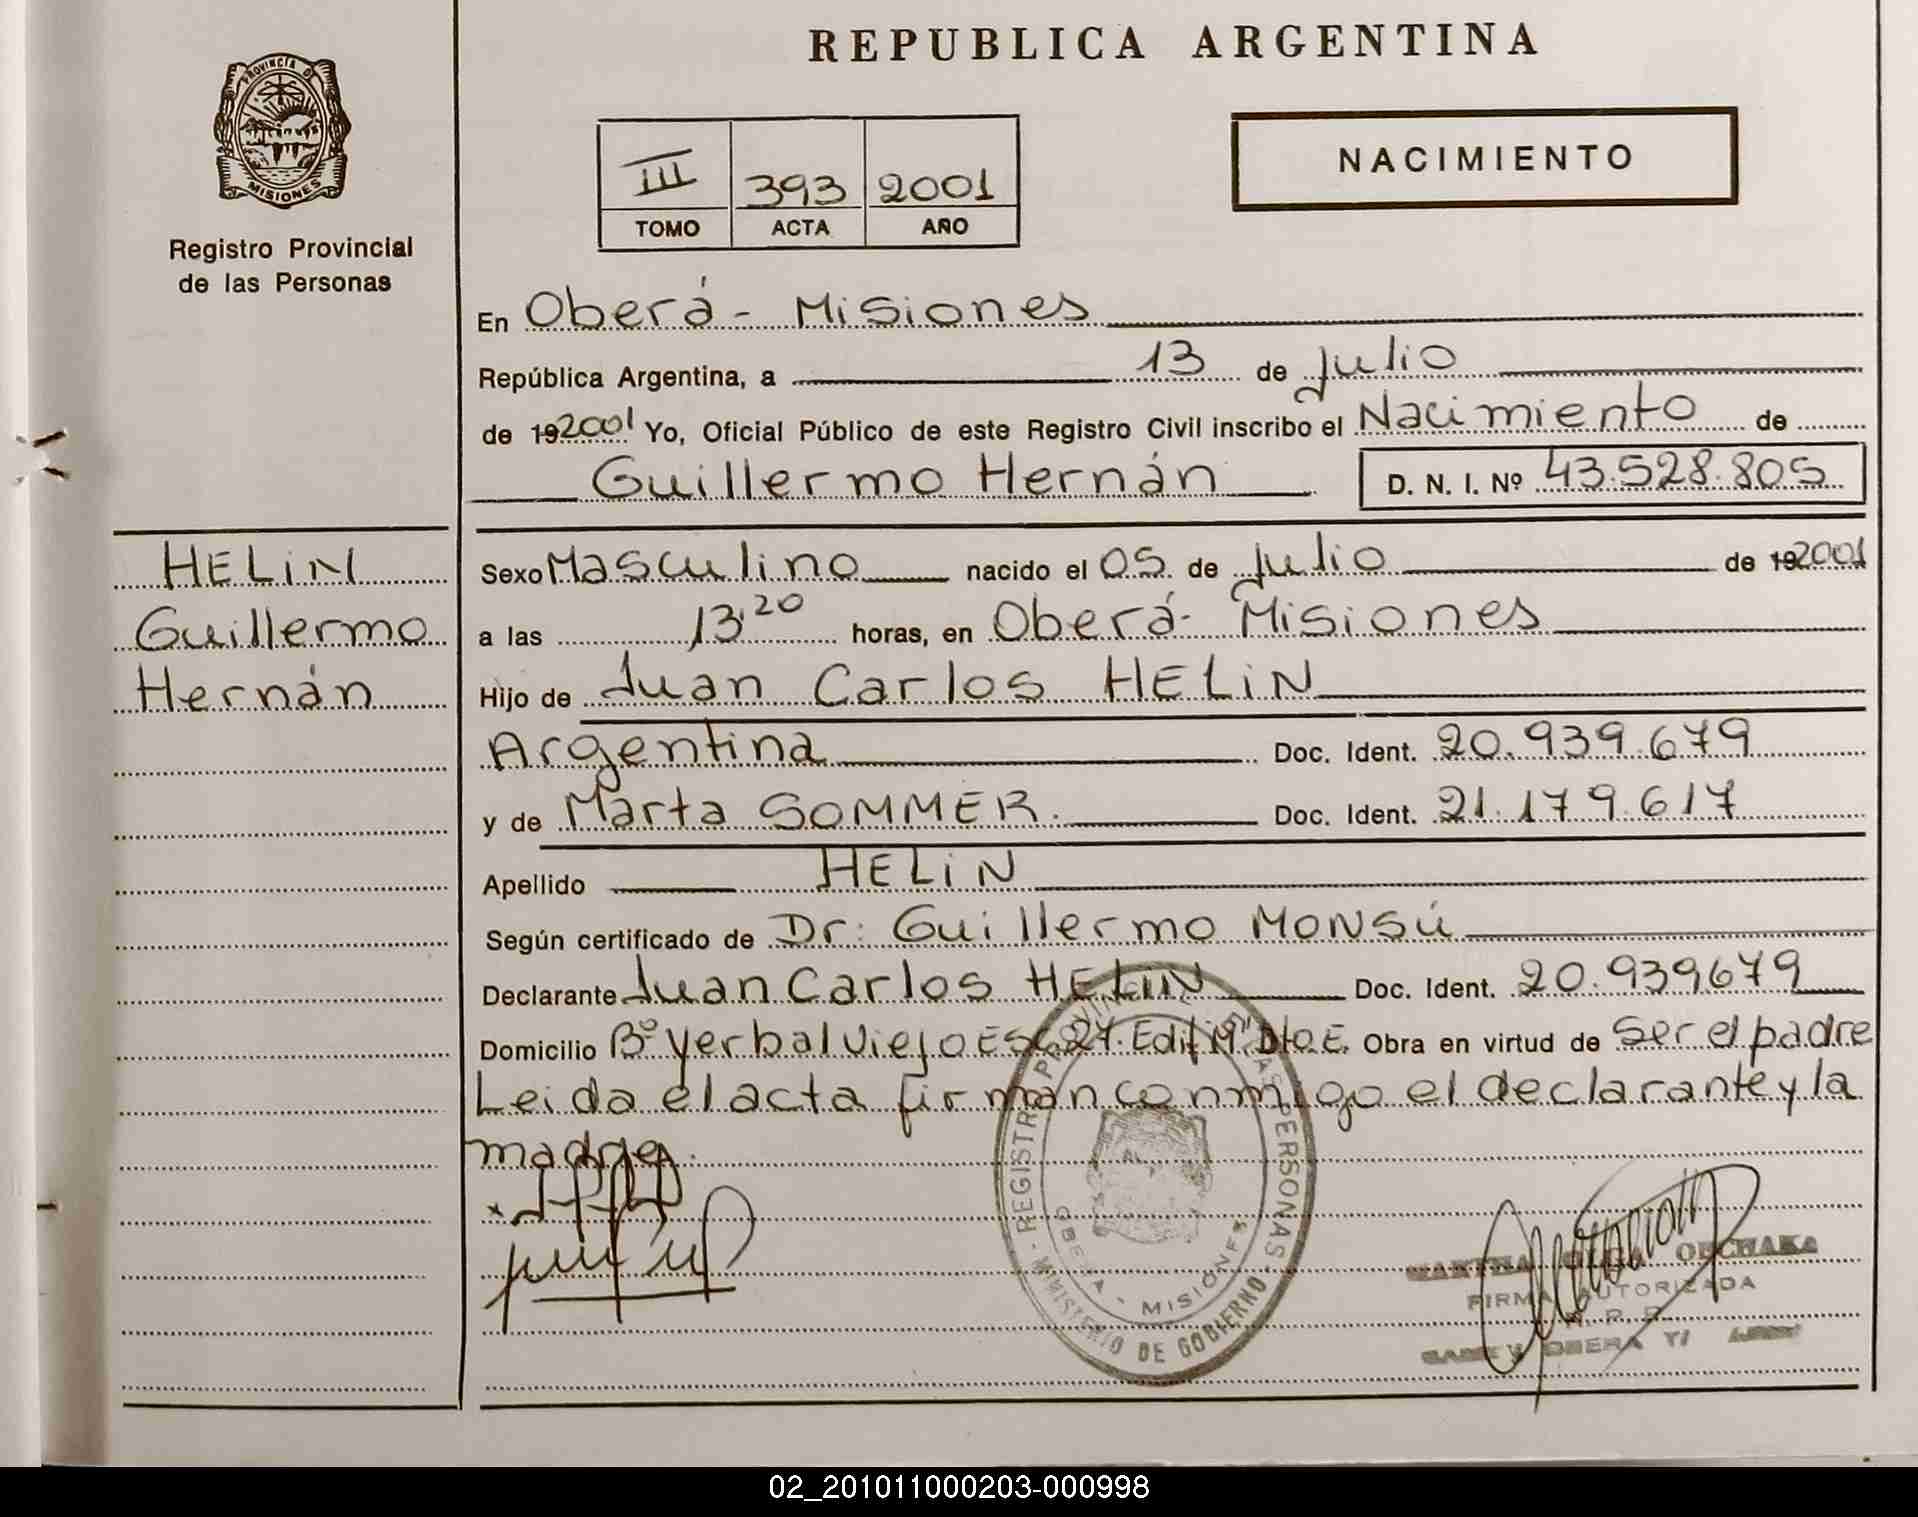 REPUBLICA ARGENTINA
PROVINCIA DE
MISIONES
Registro Provincial
de las Personas
III 393 2001
TOMO ACTA AÑO
NACIMIENTO
En Oberá - Misiones
República Argentina, a 13 de Julio
de 192001 Yo, Oficial Público de este Registro Civil inscribo el Nacimiento de
Guillermo Hernán D. N. I. Nº 43.528.805
HELIN
Guillermo
Hernán
Sexo Masculino nacido el 05 de Julio de 192001
a las 13,20 horas, en Oberá - Misiones
Hijo de Juan Carlos HELIN
Argentina Doc. Ident. 20.939.679
y de Marta SOMMER. Doc. Ident. 21.179.617
Apellido HELIN
Según certificado de Dr: Guillermo MONSÚ
Declarante Juan Carlos HELIN Doc. Ident. 20.939679
Domicilio Bº Yerbal Viejo Esc. 27. Edif. Dto E. Obra en virtud de Ser el padre
Leida el acta firman conmigo el declarante y la
madre.
REGISTRO PROVINCIAL DE LAS PERSONAS
MINISTERIO DE GOBIERNO
OBERA - MISIONES
MARTHA OLGA
FIRMA AUTORIZADA
R. P. P.
OBERA
02_201011000203-000998